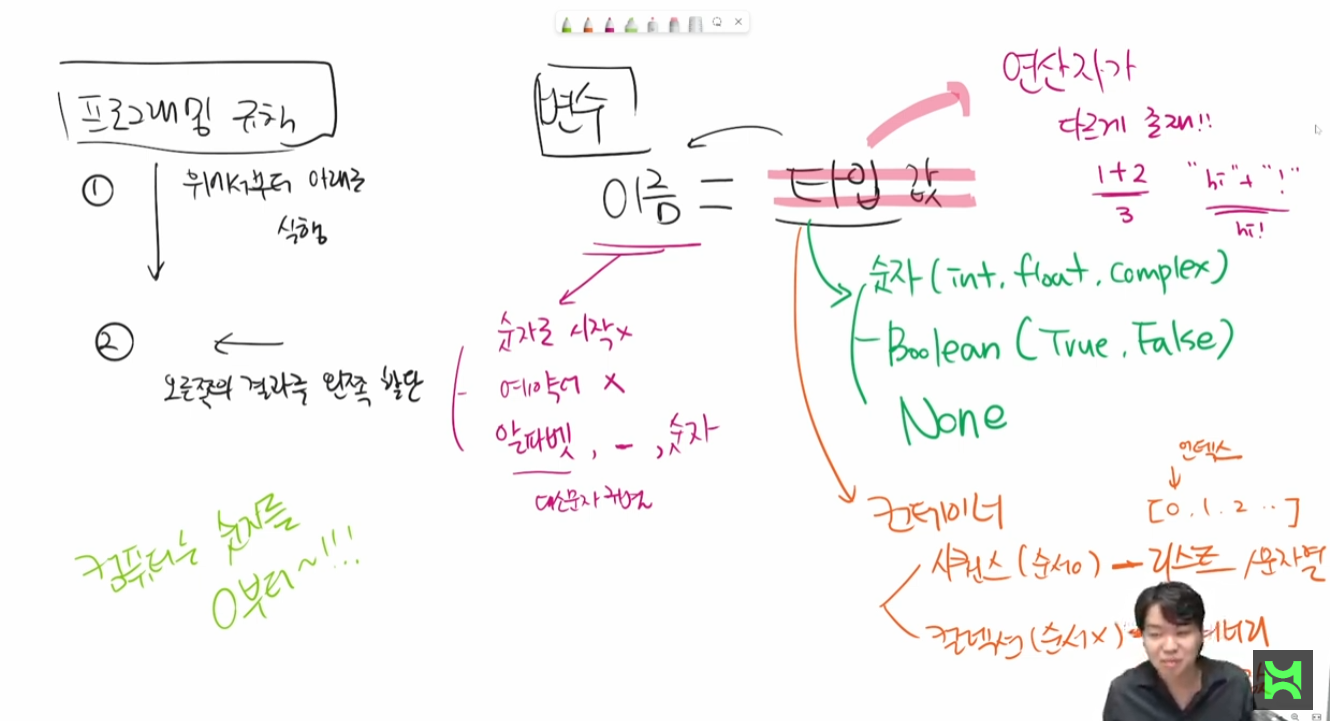 프로그래밍 규칙
① 위에서부터 아래로
실행
② ←
오른쪽의 결과를 왼쪽 할당
컴퓨터는 숫자를
0부터~!!!
변수
이름 = 타입 값
숫자로 시작 x
예약어 x
알파벳, _, 숫자
대소문자 구분
연산자가
다르게 출력!!
1+2
3
"hi"+"!"
hi!
숫자(int, float, complex)
Boolean (True, False)
None
컨테이너
인덱스
[0, 1, 2 ..]
시퀀스(순서o) - 리스트 / 문자열
컬렉션(순서x) -